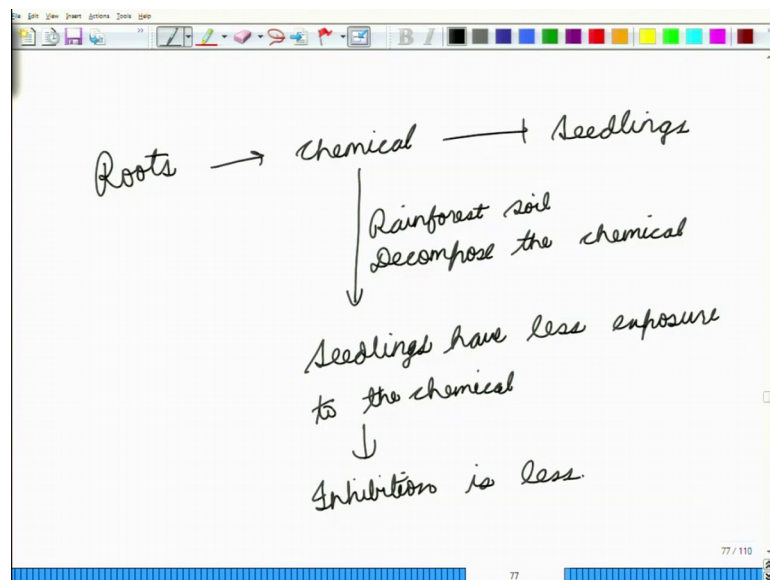 File Edit View Insert Actions Tools Help
B I
Roots → chemical —| seedlings
Rainforest soil
Decompose the chemical
seedlings have less exposure
to the chemical
↓
Inhibition is less.
77 / 110
77